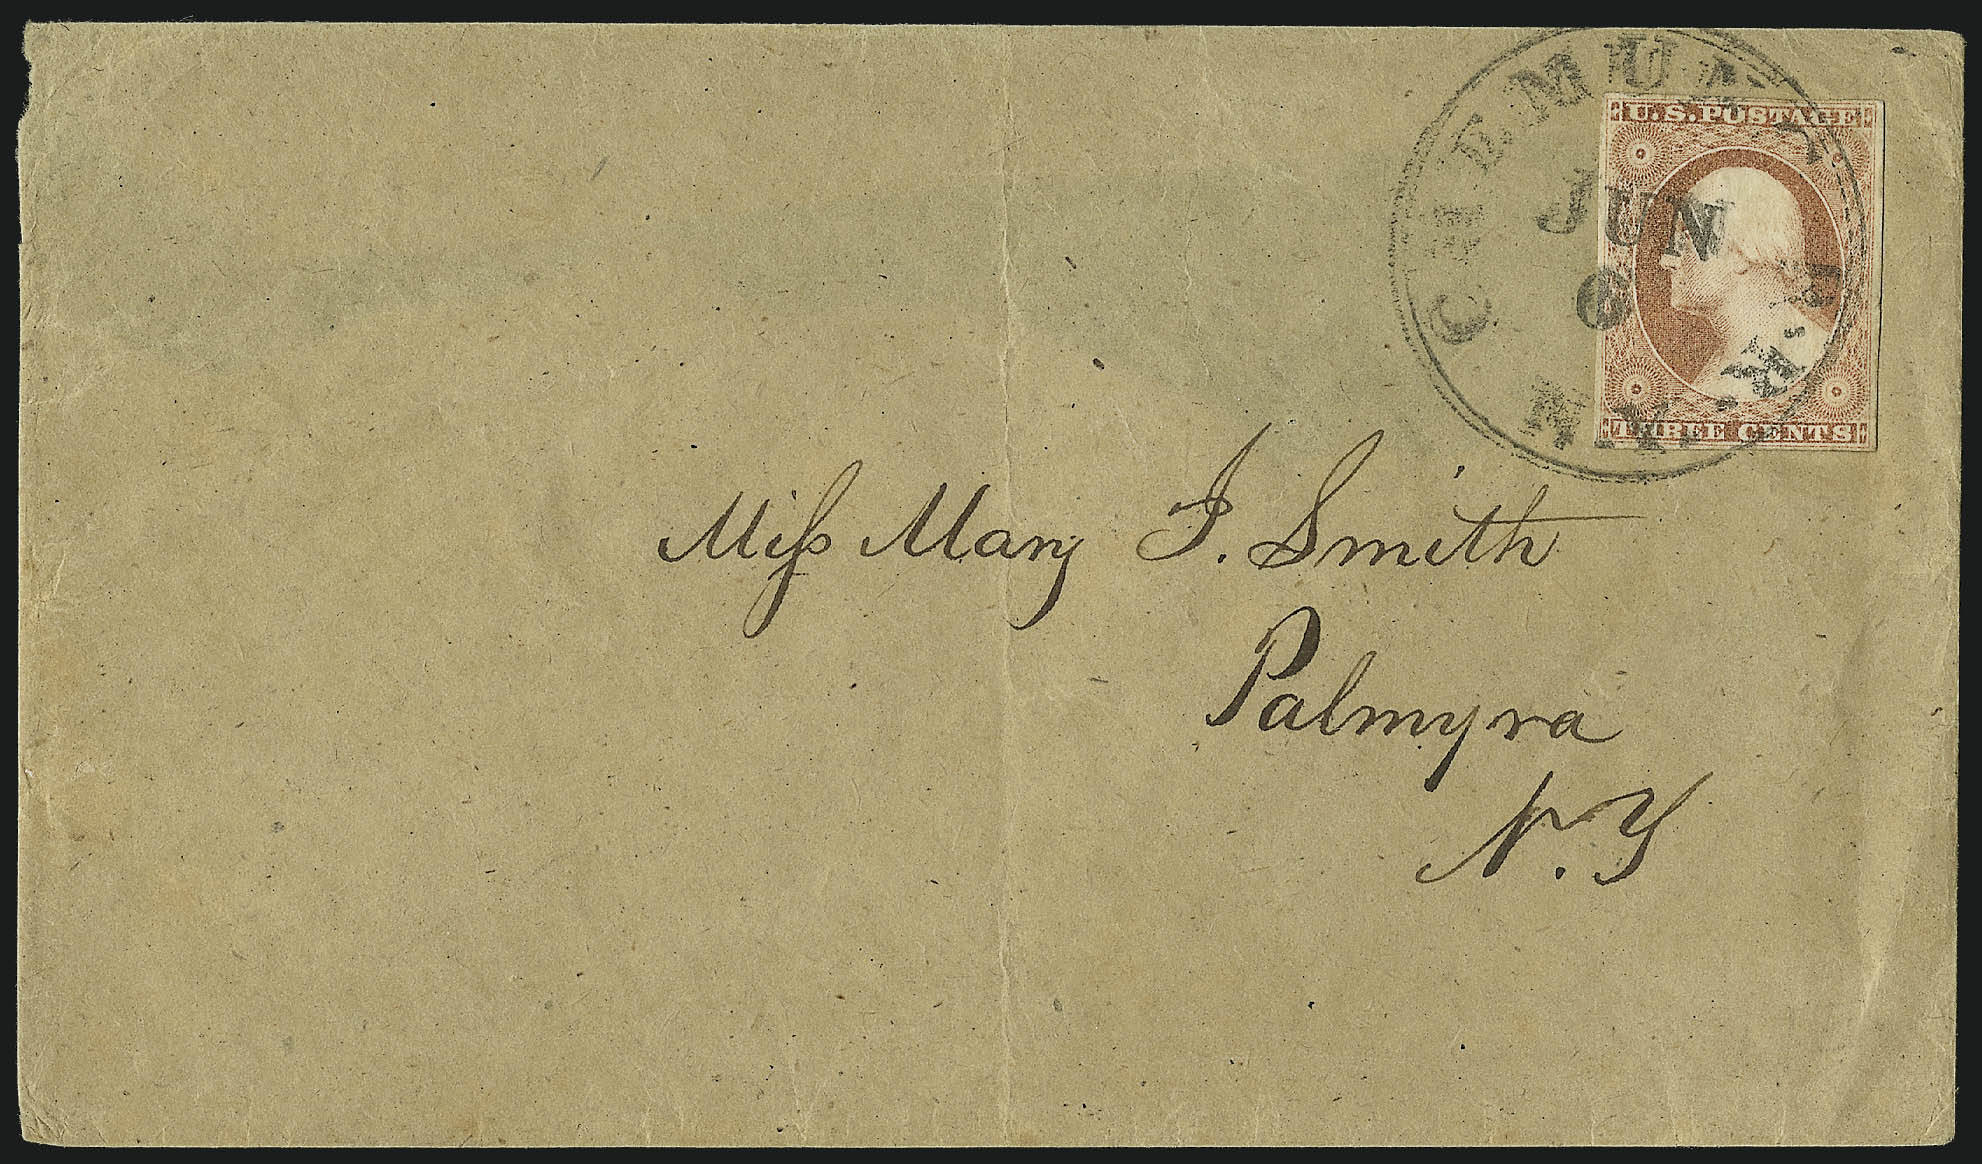 CHEMUNG
R.R.
JUN
6
N.Y.
U.S. POSTAGE
THREE CENTS
Miss Mary J. Smith
Palmyra
N.Y